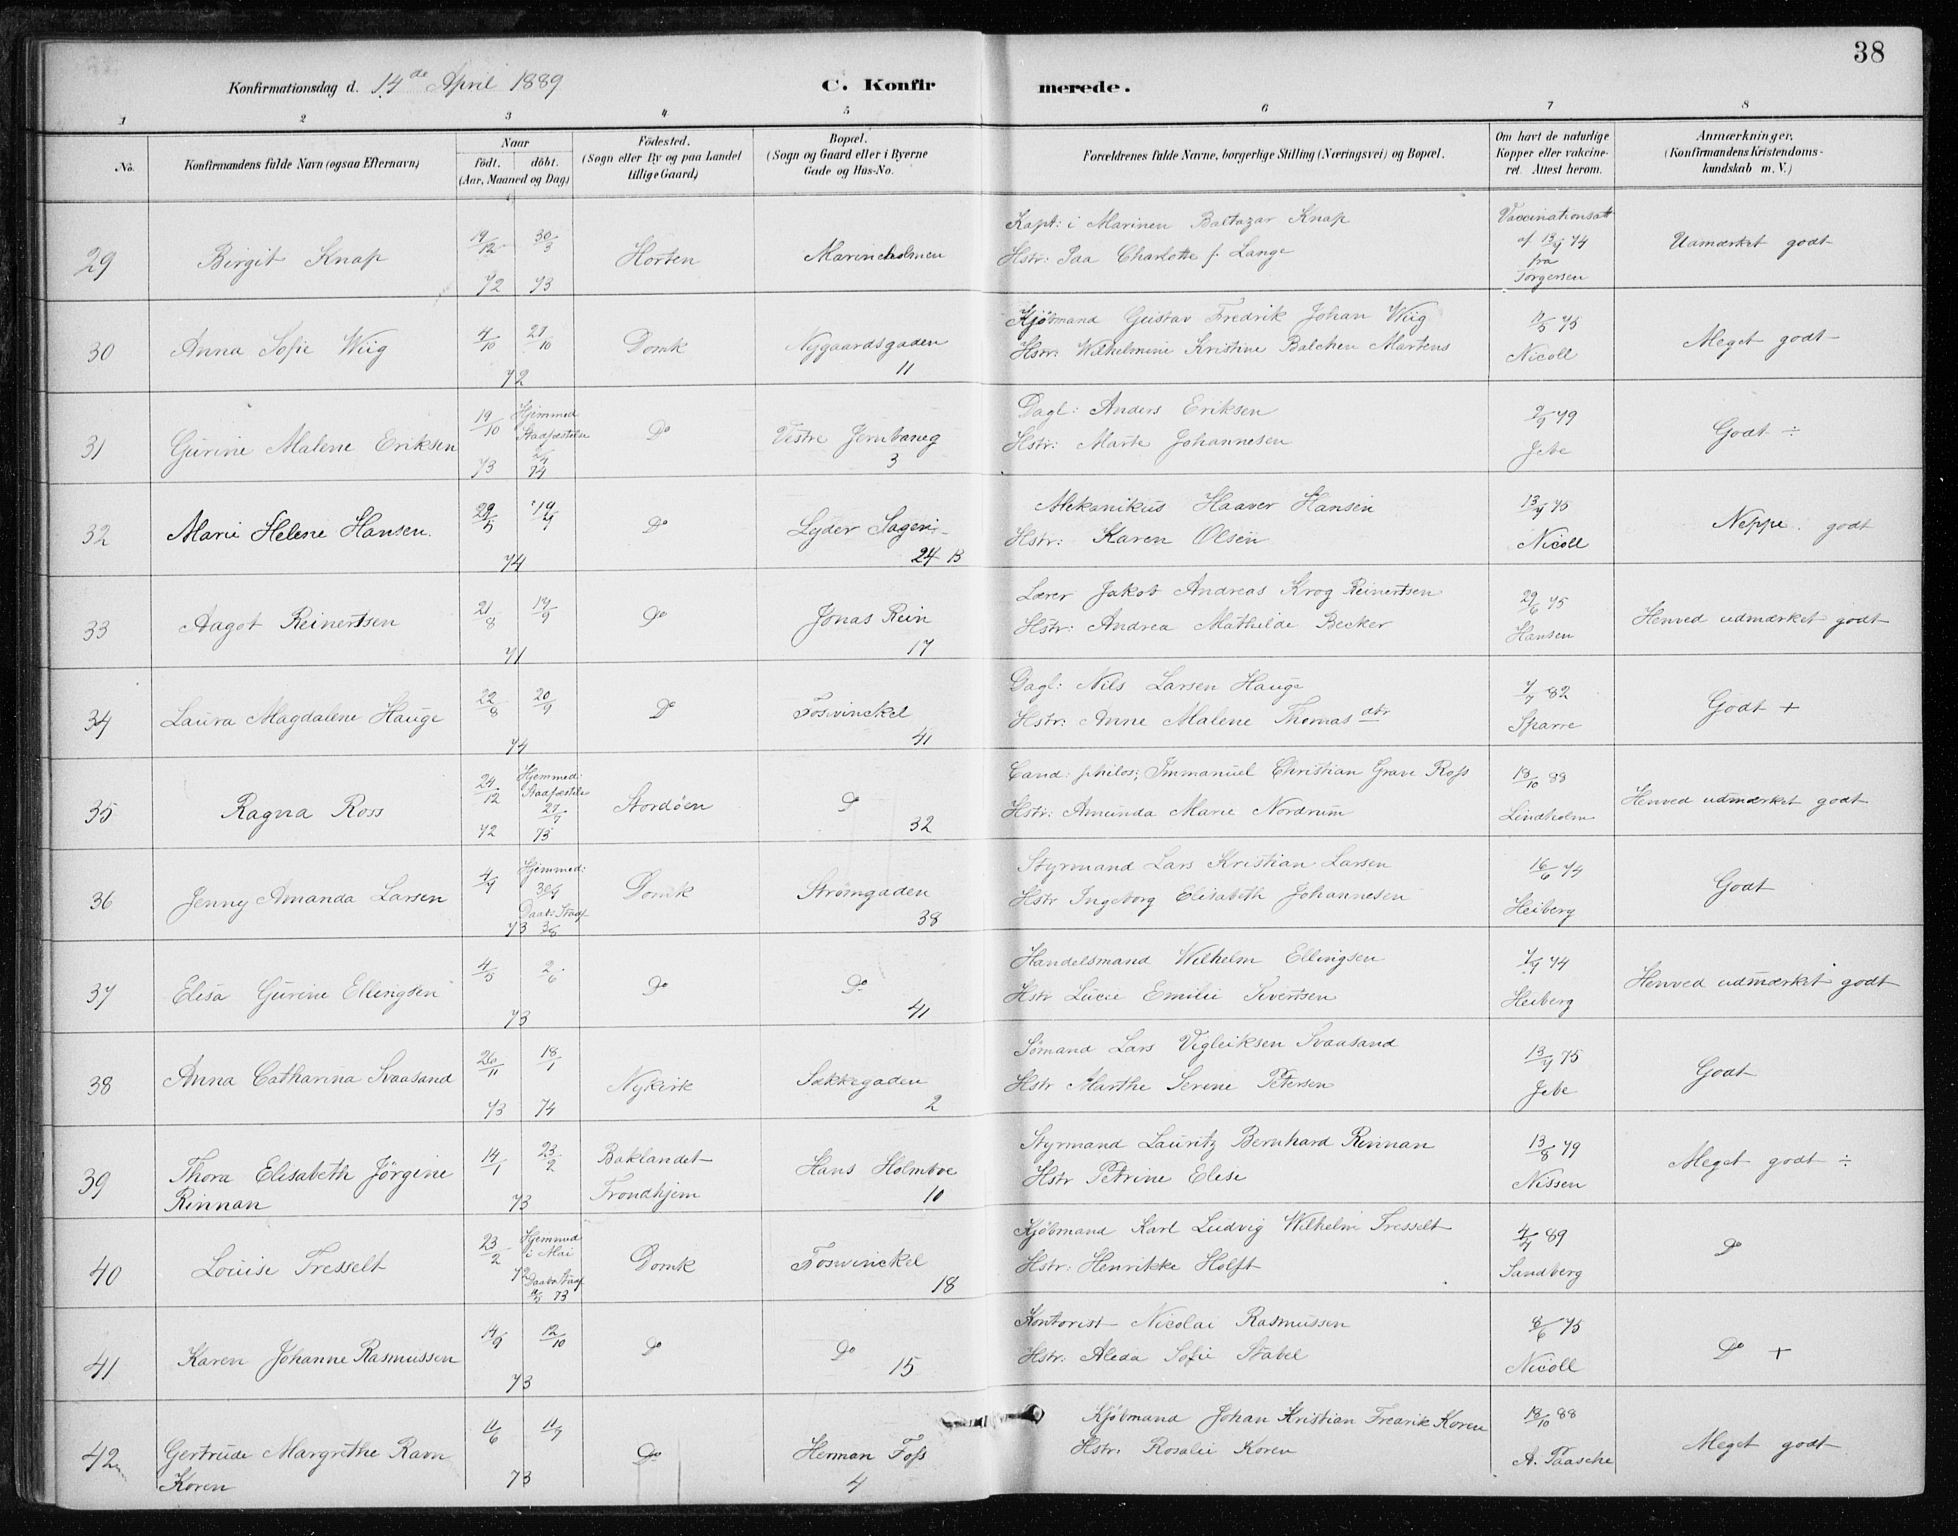 38
Konfirmationsdag d. 14de April 1889 C. Konfirmerede.
1 2 3 4 5 6 7 8
No. Konfirmandens fulde Navn (ogsaa Efternavn) Naar födt. döbt. (Aar, Maaned og Dag) Födested. (Sogn eller By og paa Landet tillige Gaard) Bopæl. (Sogn og Gaard eller i Byerne Gade og Hus-No. Forældrenes fulde Navne, borgerlige Stilling (Næringsvei) og Bopæl. Om havt de naturlige Kopper eller vakcineret. Attest herom. Anmærkninger. (Konfirmandens Kristendomskundskab m. V.)
29 Birgit Knap 19/12 72 30/3 73 Horten Marineholmen Kapt: i Marinen Baltazar Knap Vaccinationsatt af 13/4 74 fra Torgersen Uamærket godt
Hstr: Paa Charlotte f. Lange
30 Anna Sofie Wiig 4/10 27/10 72 Domk Nygaardsgaden 11 Kjöbmand Gustav Fredrik Johan Wiig 75 Nicoll Meget godt
Hstr: Wilhelmine Kristine Balchen Martens
31 Gurine Malene Eriksen 19/10 73 Hjemmed Stadfæstelse 74 Do Vestre Jernbaneg 3 Dagl: Anders Eriksen 2/9 79 Jebe Godt ÷
Hstr: Marte Johannesen
32 Marie Helene Hansen. 29/5 19/7 74 Do Lyder Sagen: 24 B Mekanikus Haaver Hansen 13/4 75 Nicoll Neppe godt
Hstr: Karen Olsen
33 Aagot Reinertsen 21/8 17/9 71 Do Jonas Rein 17 Lærer Jakob Andreas Krog Reinertsen 29/6 75 Hansen Henved udmærket godt
Hstr: Andrea Mathilde Becker
34 Laura Magdalene Hauge 22/8 20/9 74 Do Foswinckel 41 Dagl: Nils Larsen Hauge 7/7 82 Sparre Godt +
Hstr: Anne Malene Thomasdtr
35 Ragna Ross 24/12 72 Hjemmed: Stadfæstelse 27/7 73 Stordöen Do 32 Cand: philos: Immanuel Christian Grave Ross 13/10 88 Lindholm Henved udmærket godt
Hstr: Amunda Marie Nordrum
36 Jenny Amanda Larsen 4/7 Hjemmed: Daab: Stadf 73 3/8 Domk Strömgaden 38 Styrmand Lars Kristian Larsen 16/6 74 Heiberg Godt
Hstr Ingeborg Elisabeth Johannesen
37 Elisa Gurine Ellingsen 4/5 2/6 73 Do Do 41 Handelsmand Wilhelm Ellingsen 7/7 74 Heiberg Henved udmærket godt
Hstr Lucie Emilie Sivertsen
38 Anna Catharina Svaasand 26/11 73 18/1 74 Nykirk Sækkegaden 2 Sömand Lars Vigleiksen Svaasand 13/7 75 Jebe Godt
Hstr Marthe Serene Petersen
39 Thora Elisabeth Jörgine Rinnan 14/1 23/2 73 Baklandet Trondhjem Hans Holmboe 10 Styrmand Lauritz Bernhard Rinnan 13/8 79 Nissen Meget godt ÷
Hstr Petrine Elise
40 Louise Fresselt 23/2 72 Hjemmed i Mai Daabs Stadf 73 Domk Foswinckel 18 Kjöbmand Karl Ludvig Wilhelm Fresselt 4/4 89 Sandberg Do
Hstr: Henrikke Holft
41 Karen Johanne Rasmussen 14/9 12/10 73 Do Do 15 Kontorist Nicolai Rasmussen 8/6 75 Nicoll Do +
Hstr: Aleda Sofie Stabel
42 Gertrude Margrethe Ravn Koren 11/6 11/7 73 Do Herman Foss 4 Kjöbmand Johan Kristian Fredrik Koren 13/10 88 A. Paasche Meget godt
Hstr: Rosalie Koren